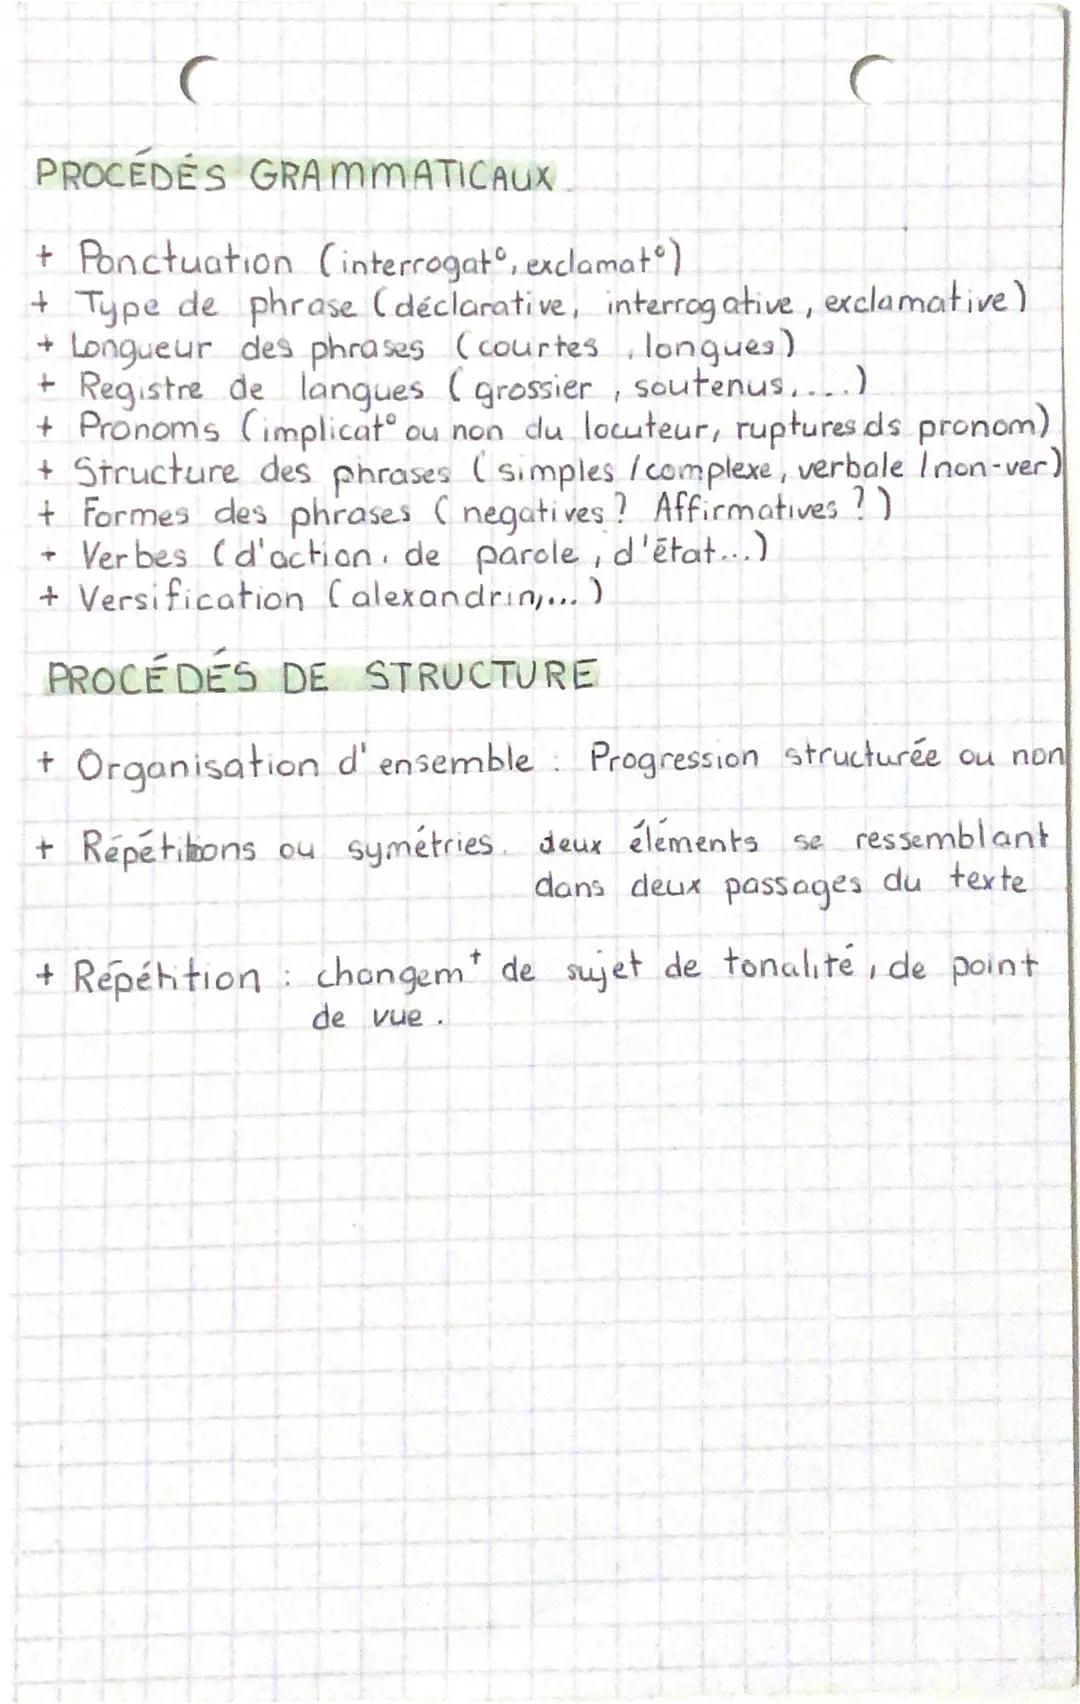 PROCÉDÉS GRAMMATICAUX
+ Ponctuation (interrogat°, exclamat°)
+ Type de phrase (déclarative, interrogative, exclamative)
+ Longueur des phrases (courtes, longues)
+ Registre de langues (grossier, soutenus,....)
+ Pronoms (implicat° ou non du locuteur, ruptures ds pronom)
+ Structure des phrases (simples /complexe, verbale /non-ver)
+ Formes des phrases (negatives? Affirmatives?)
+ Verbes (d'action, de parole, d'état...)
+ Versification (alexandrin,...)
PROCÉDÉS DE STRUCTURE
+ Organisation d'ensemble : Progression structurée ou non
+ Répétitions ou symétries. deux éléments se ressemblant
dans deux passages du texte
+ Répétition : changem^t de sujet de tonalité, de point
de vue.